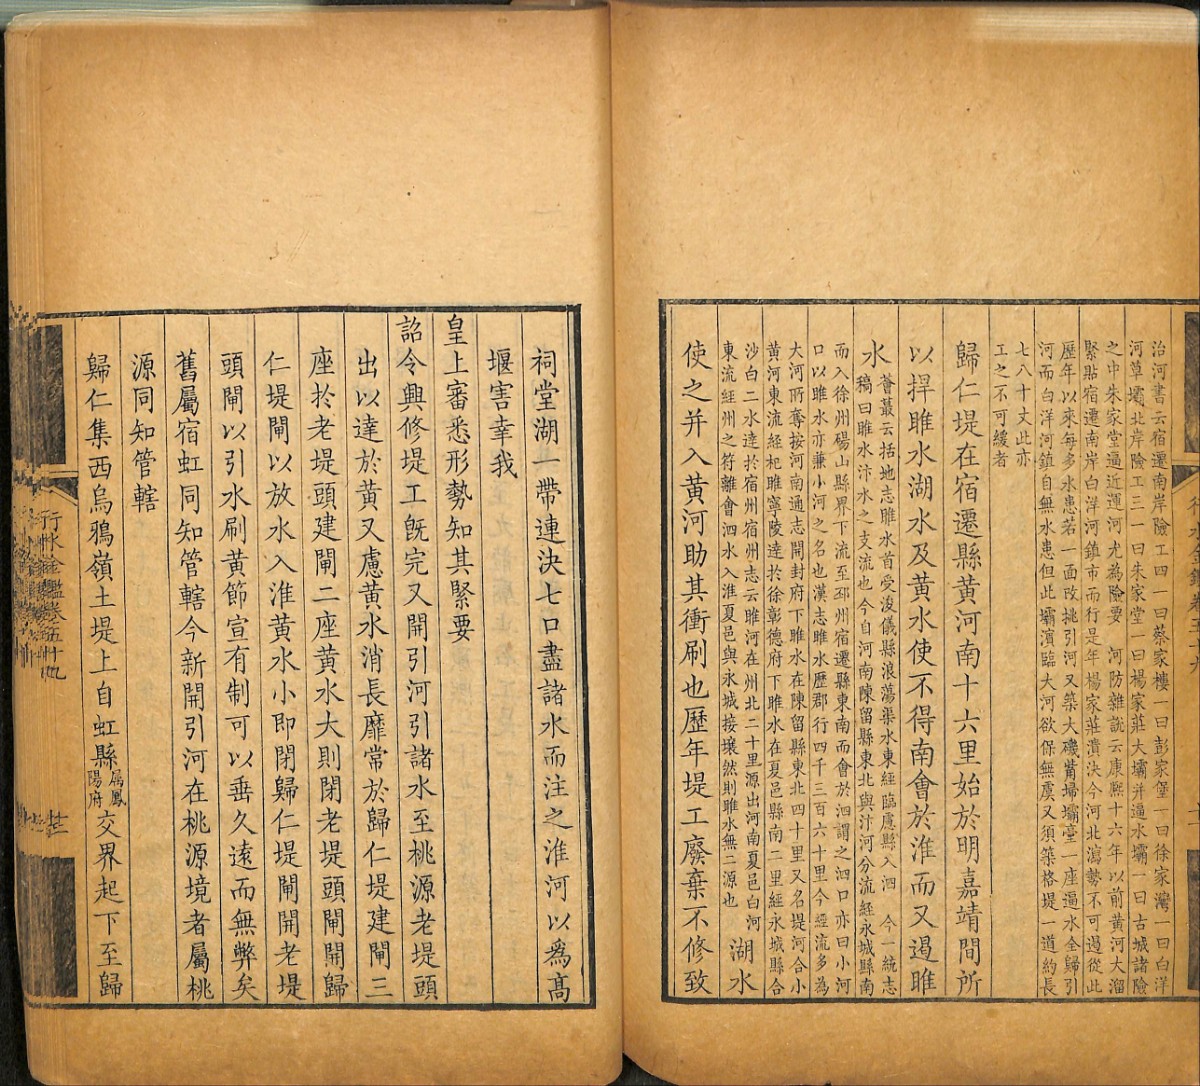 治河書云宿遷南岸險工四一曰蔡家樓一曰彭家堡一曰徐家灣一曰白洋
河草壩北岸險工三一曰朱家堂一曰楊家莊大壩并逼水壩一曰古城諸險
之中朱家堂逼近運河尤為險要　河防雜說云康熙十六年以前黃河大溜
緊貼宿遷南岸白洋河鎮市而行是年楊家莊潰決今河北瀉勢不可遏從此
歷年以來每多水患若一面改挑引河又築大磯觜埽壩臺一座逼水全歸引
河而白洋河鎮自無水患但此壩濱臨大河欲保無虞又須築格堤一道約長
七八十丈此亦
工之不可緩者
歸仁堤在宿遷縣黃河南十六里始於明嘉靖間所
以捍睢水湖水及黃水使不得南會於淮而又遏睢
水
薈蕞云括地志睢水首受浚儀縣浪蕩渠水東經臨慮縣入泗　今一統志
稿曰睢水汴水之支流也今自河南陳留縣東北與汴河分流經永城縣南
而入徐州碭山縣界下流至邳州宿遷縣東南而會於泗謂之泗口亦曰小河
口以睢水亦兼小河之名也漢志睢水歷郡行四千三百六十里今經流多為
大河所奪按河南通志開封府下睢水在陳留縣東北四十里又名堤河合小
黃河東流經杞睢寧陵達於徐彰德府下睢水在夏邑縣南二里經永城縣合
沙白二水達於宿州宿州志云睢河在州北二十里源出河南夏邑白河
東流經州之符離會泗水入淮夏邑與永城接壤然則睢水無二源也
湖水
使之并入黃河助其衝刷也歷年堤工廢棄不修致
祠堂湖一帶連決七口盡諸水而注之淮河以為高
堰害幸我
皇上審悉形勢知其緊要
詔令興修堤工既完又開引河引諸水至桃源老堤頭
出以達於黃又慮黃水消長靡常於歸仁堤建閘三
座於老堤頭建閘二座黃水大則閉老堤頭閘開歸
仁堤閘以放水入淮黃水小即閉歸仁堤閘開老堤
頭閘以引水刷黃節宣有制可以垂久遠而無弊矣
舊屬宿虹同知管轄今新開引河在桃源境者屬桃
源同知管轄
歸仁集西烏鴉嶺土堤上自虹縣屬鳳陽府交界起下至歸
行水金鑑卷五十九
廿三